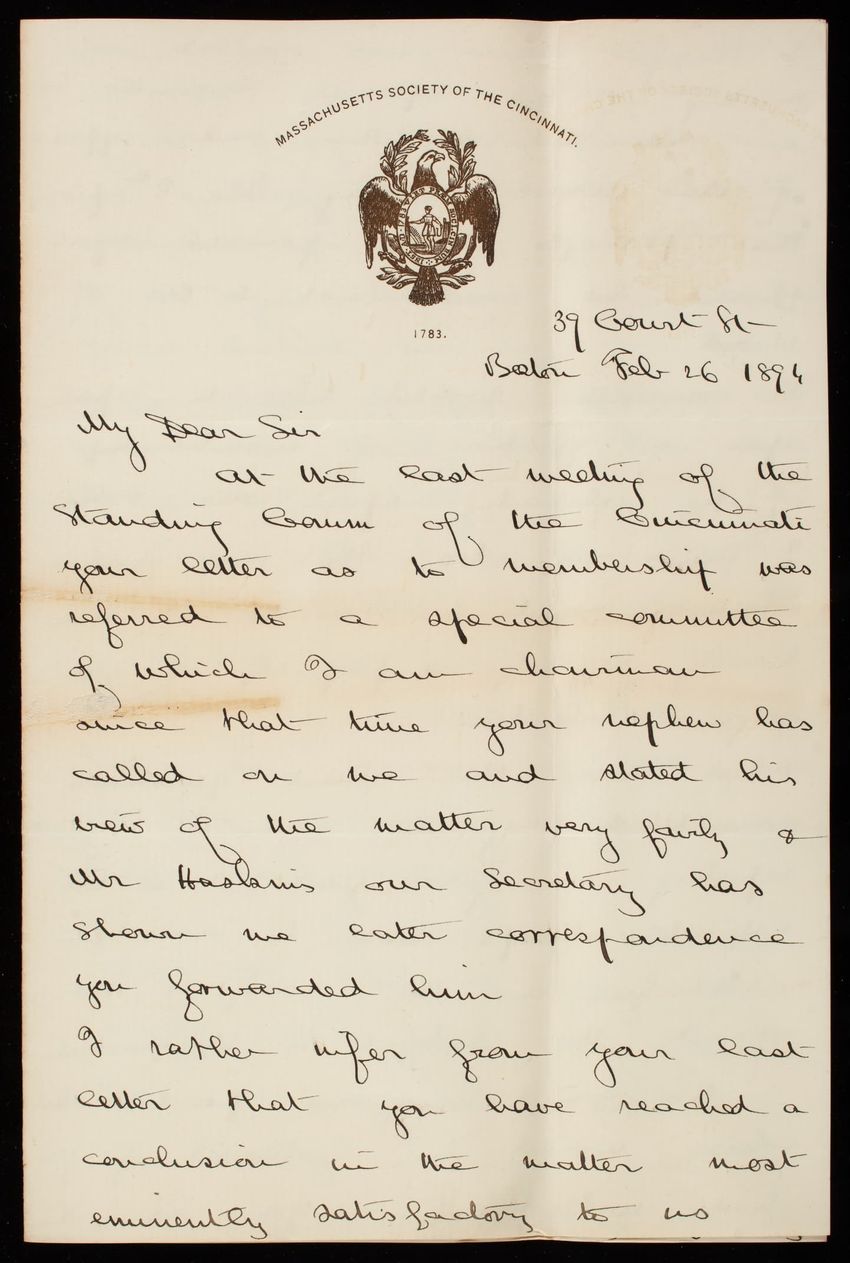 MASSACHUSETTS SOCIETY OF THE CINCINNATI.
1783.
39 Court St
Boston Feb 26 1894
My Dear Sir
at the last meeting of the
Standing Comm of the Cincinnati
your letter as to membership was
referred to a special committee
of which I am chairman
since that time your nephew has
called on me and stated his
view of the matter very fairly &
Mr Haskins our Secretary has
shown me later correspondence
you forwarded him
I rather infer from your last
letter that you have reached a
conclusion in the matter most
eminently satisfactory to us